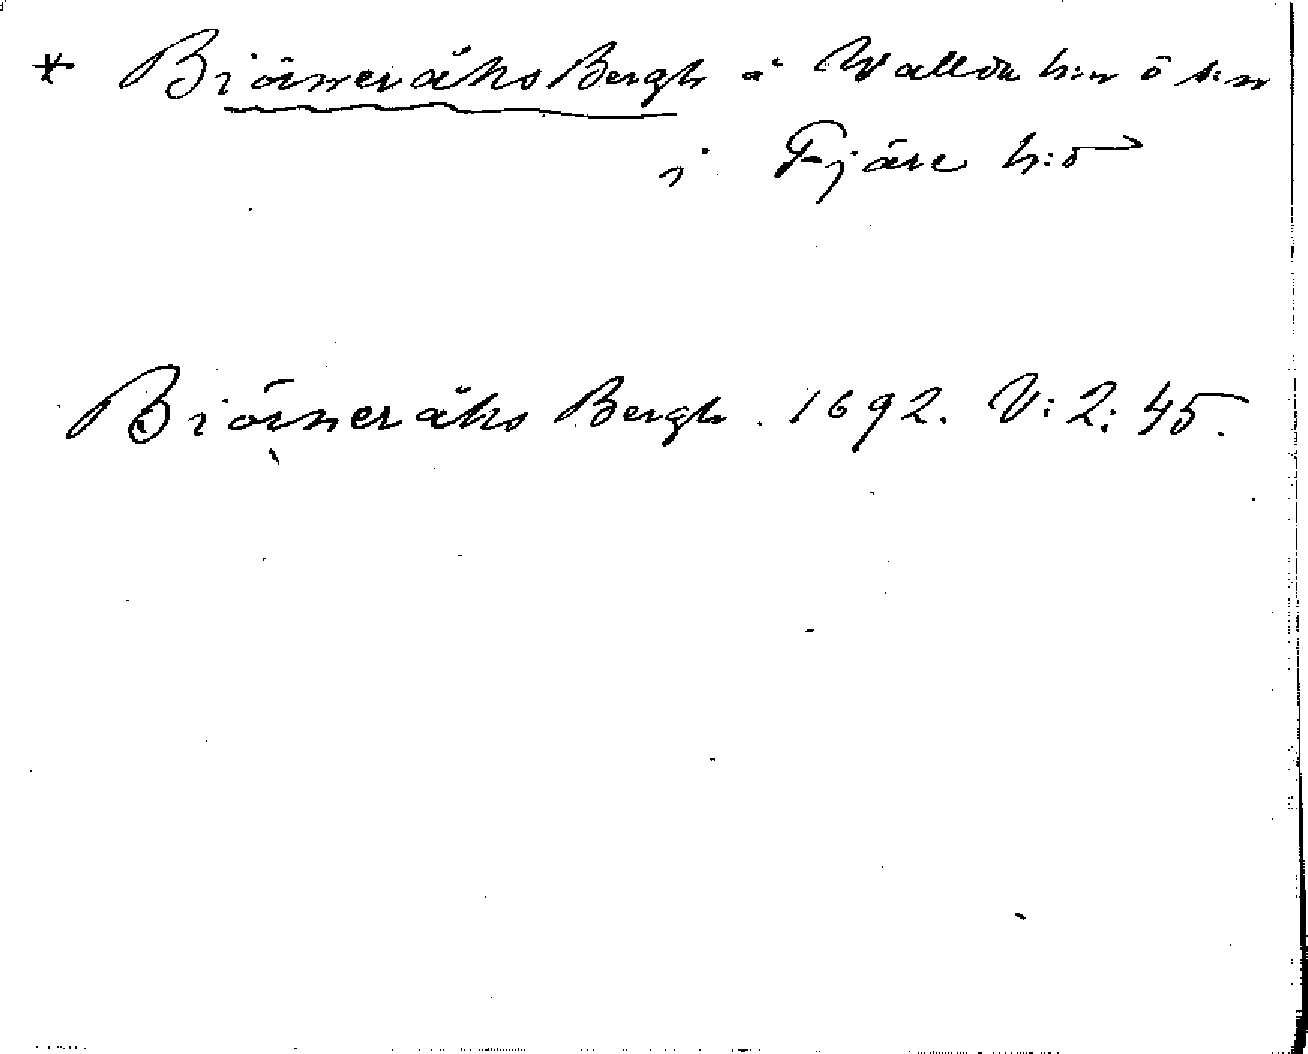 * Biörneråhs Bergh å Wallda h:n ö s:n
i Fjäre h:d
Biörneråhs Bergh. 1692. V: 2: 45.